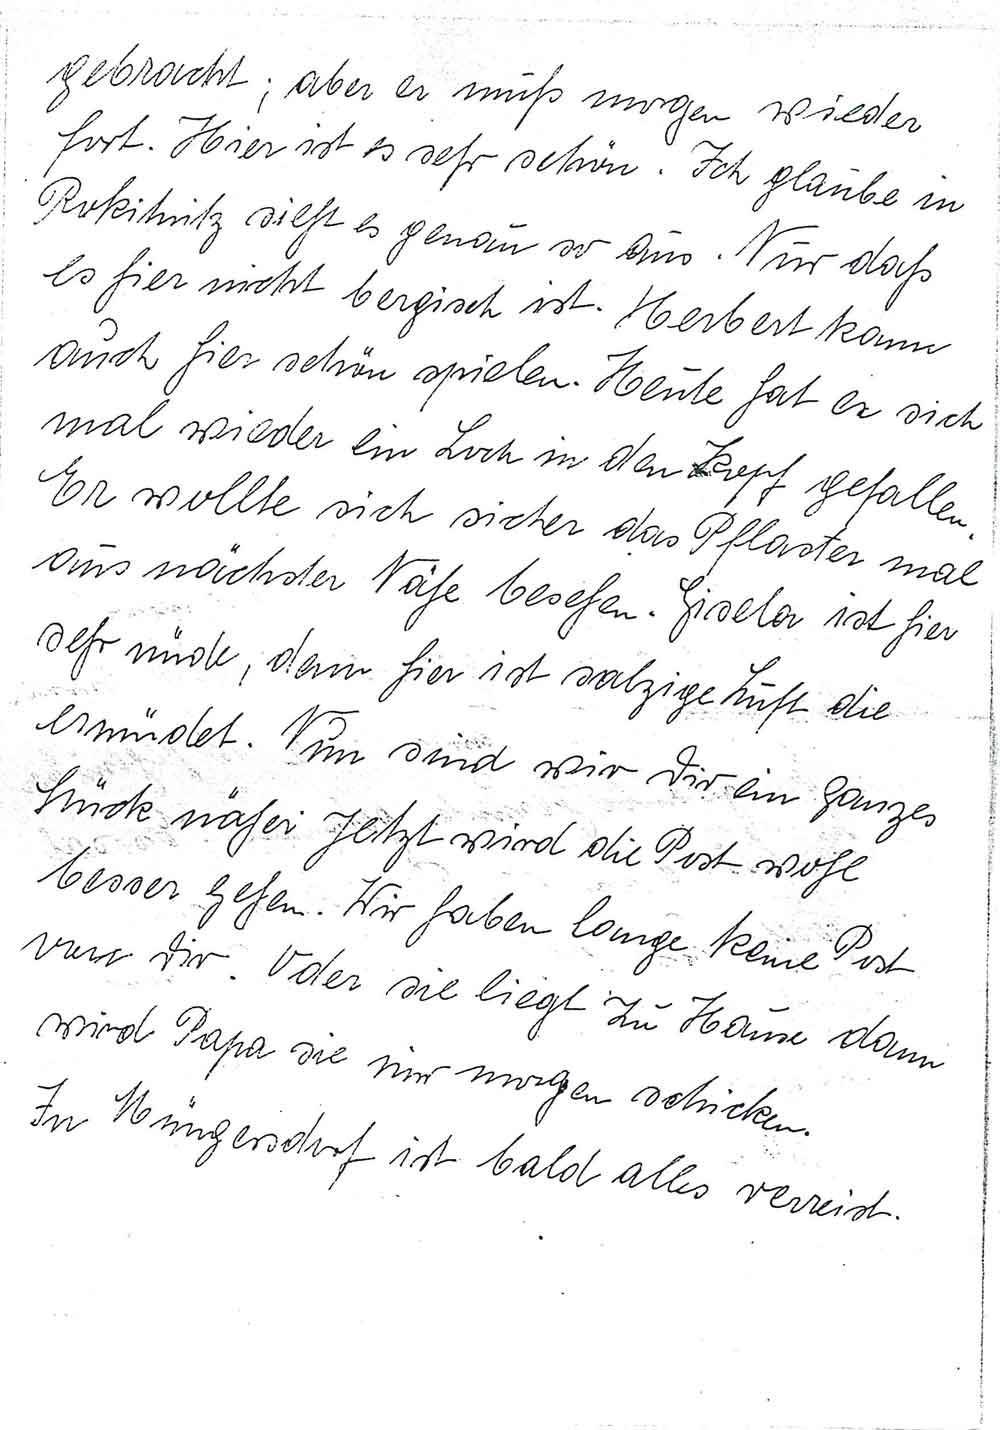 gebracht; aber er muß morgen wieder
fort. Hier ist es sehr schön. Ich glaube in
Rokitnitz sieht es genau so aus. Nur daß
es hier nicht bergisch ist. Herbert kann
auch hier schön spielen. Heute hat er sich
mal wieder ein Loch in den Kopf gefallen.
Er wollte sich sicher das Pflaster mal
aus nächster Nähe besehen. Gisela ist hier
sehr müde, denn hier ist salzige Luft die
ermüdet. Nun sind wir Dir ein ganzes
Stück näher Jetzt wird die Post wohl
besser gehen. Wir haben lange keine Post
von Dir. Oder sie liegt zu Hause dann
wird Papa sie mir morgen schicken.
In Müngersdorf ist bald alles verreist.